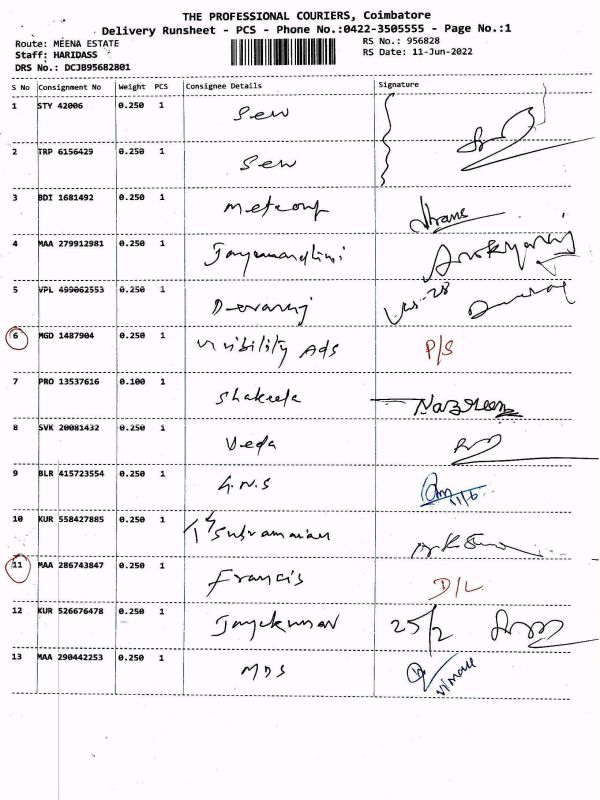 THE PROFESSIONAL COURIERS, Coimbatore
Delivery Runsheet - PCS - Phone No.:0422-3505555 - Page No.:1
Route: MEENA ESTATE
RS No.: 956828
Staff: HARIDASS
RS Date: 11-Jun-2022
DRS No.: DCJB95682801
S No Consignment No Weight PCS Consignee Details Signature
1 STY 42006 0.250 1 Sew
2 TRP 6156429 0.250 1 Sew
3 BDI 1681492 0.250 1
4 MAA 279912981 0.250 1
5 VPL 499062553 0.250 1 Devaraj
6 MGD 1487904 0.250 1 Visibility Ads P/S
7 PRO 13537616 0.100 1 Shakeela Nazreen
8 SVK 20081432 0.250 1 Veda
9 BLR 415723554 0.250 1 G.N.S 11/6
10 KUR 558427885 0.250 1
11 MAA 286743847 0.250 1 Francis D/L
12 KUR 526676478 0.250 1 Jayakumar 25/2
13 MAA 290442253 0.250 1 MDS